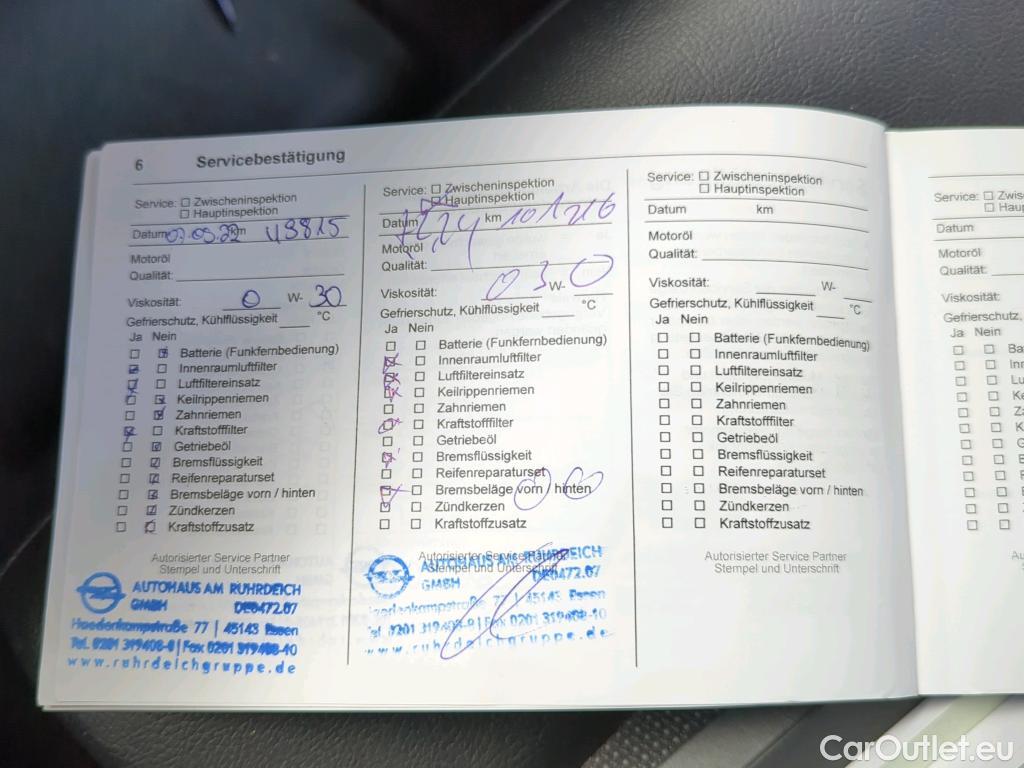 6 Servicebestätigung
Service: ☐ Zwischeninspektion
☐ Hauptinspektion
Datum km 49815
Motoröl
Qualität:
Viskosität: 0 W- 30
Gefrierschutz, Kühlflüssigkeit °C
Ja Nein
Batterie (Funkfernbedienung)
Innenraumluftfilter
Luftfiltereinsatz
Keilrippenriemen
Zahnriemen
Kraftstofffilter
Getriebeöl
Bremsflüssigkeit
Reifenreparaturset
Bremsbeläge vorn / hinten
Zündkerzen
Kraftstoffzusatz
Autorisierter Service Partner
Stempel und Unterschrift
AUTOHAUS AM RUHRDEICH
GMBH DE0472.07
Haedenkampstraße 77 | 45143 Essen
Tel. 0201 319408-0 | Fax 0201 319408-10
www.ruhrdeichgruppe.de
Service: ☐ Zwischeninspektion
Hauptinspektion
Datum km 101216
Motoröl
Qualität:
Viskosität: 0 W- 30
Gefrierschutz, Kühlflüssigkeit °C
Ja Nein
Batterie (Funkfernbedienung)
Innenraumluftfilter
Luftfiltereinsatz
Keilrippenriemen
Zahnriemen
Kraftstofffilter
Getriebeöl
Bremsflüssigkeit
Reifenreparaturset
Bremsbeläge vorn / hinten
Zündkerzen
Kraftstoffzusatz
Autorisierter Service Partner
Stempel und Unterschrift
AUTOHAUS AM RUHRDEICH
GMBH DE0472.07
Haedenkampstraße 77 | 45143 Essen
Tel. 0201 319408-0 | Fax 0201 319408-10
www.ruhrdeichgruppe.de
Service: ☐ Zwischeninspektion
☐ Hauptinspektion
Datum km
Motoröl
Qualität:
Viskosität: W-
Gefrierschutz, Kühlflüssigkeit °C
Ja Nein
Batterie (Funkfernbedienung)
Innenraumluftfilter
Luftfiltereinsatz
Keilrippenriemen
Zahnriemen
Kraftstofffilter
Getriebeöl
Bremsflüssigkeit
Reifenreparaturset
Bremsbeläge vorn / hinten
Zündkerzen
Kraftstoffzusatz
Autorisierter Service Partner
Stempel und Unterschrift
Service: ☐ Zwisc
☐ Haup
Datum
Motoröl
Qualität:
Viskosität:
Gefrierschutz,
Ja Nein
CarOutlet.eu